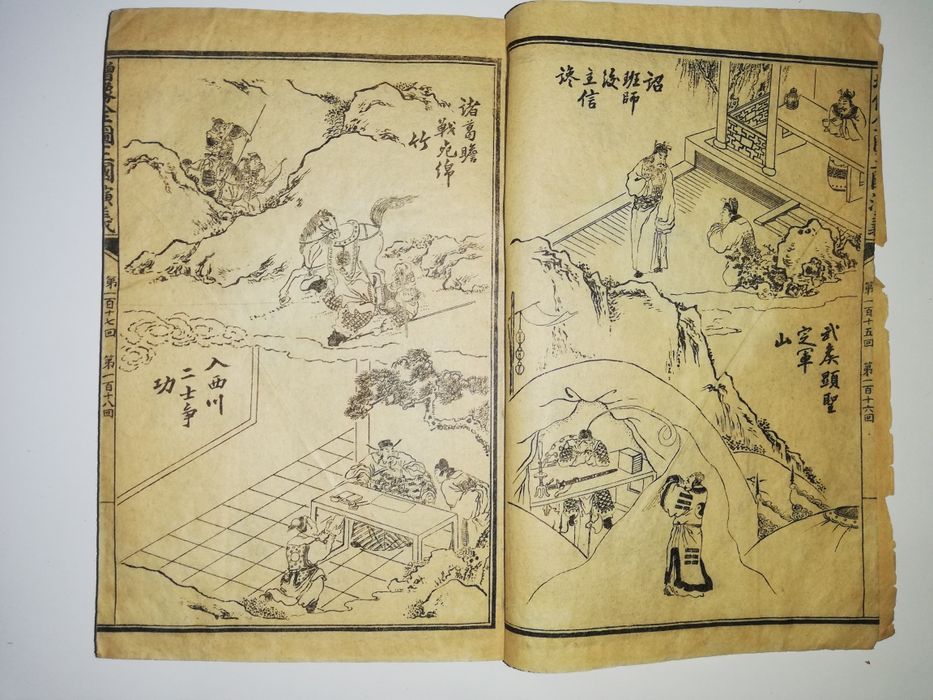 詔
班師
後
主信
讒
武侯顯聖
定軍
山
第一百十五回 第一百十六回
諸葛瞻
戰死綿
竹
入西川
二士爭
功
第一百十七回 第一百十八回